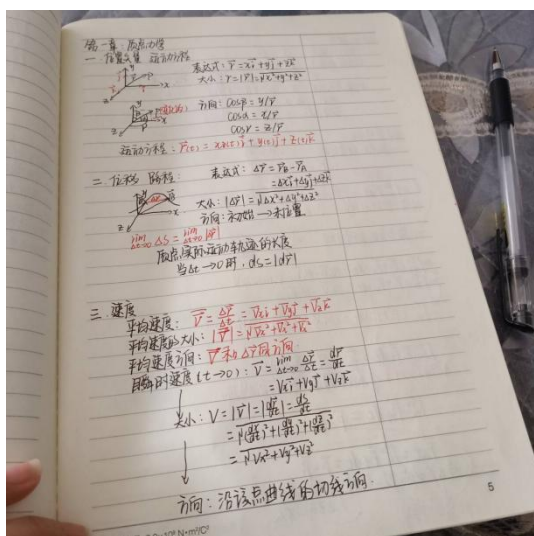 第一章：质点力学
一 位置矢量 运动方程
表达式：r⃗=xi⃗+yj⃗+zk⃗
大小：r=|r⃗|=√x²+y²+z²
方向：cosβ=y/r
cosα=x/r
cosγ=z/r
运动方程：r⃗(t)=x(t)i⃗+y(t)j⃗+z(t)k⃗
二 位移 路程：
表达式：Δr⃗=r⃗B-r⃗A
=Δxi⃗+Δyj⃗+Δzk⃗
大小：|Δr⃗|=√Δx²+Δy²+Δz²
方向：初始→末位置
质点实际运动轨迹的长度
当Δt→0时，ds=|dr⃗|
三 速度
平均速度：V⃗=Δr⃗/Δt=Vxi⃗+Vyj⃗+Vzk⃗
平均速度的大小：|V⃗|=√Vx²+Vy²+Vz²
平均速度方向：V⃗和Δr⃗同方向.
瞬时速度(t→0)：V⃗=lim Δt→0 Δr⃗/Δt=dr⃗/dt
=Vxi⃗+Vyj⃗+Vzk⃗
大小：V=|V⃗|=|dr⃗/dt|=ds/dt
=√(dx/dt)²+(dy/dt)²+(dz/dt)²
=√Vx²+Vy²+Vz²
方向：沿该点曲线的切线方向.
5